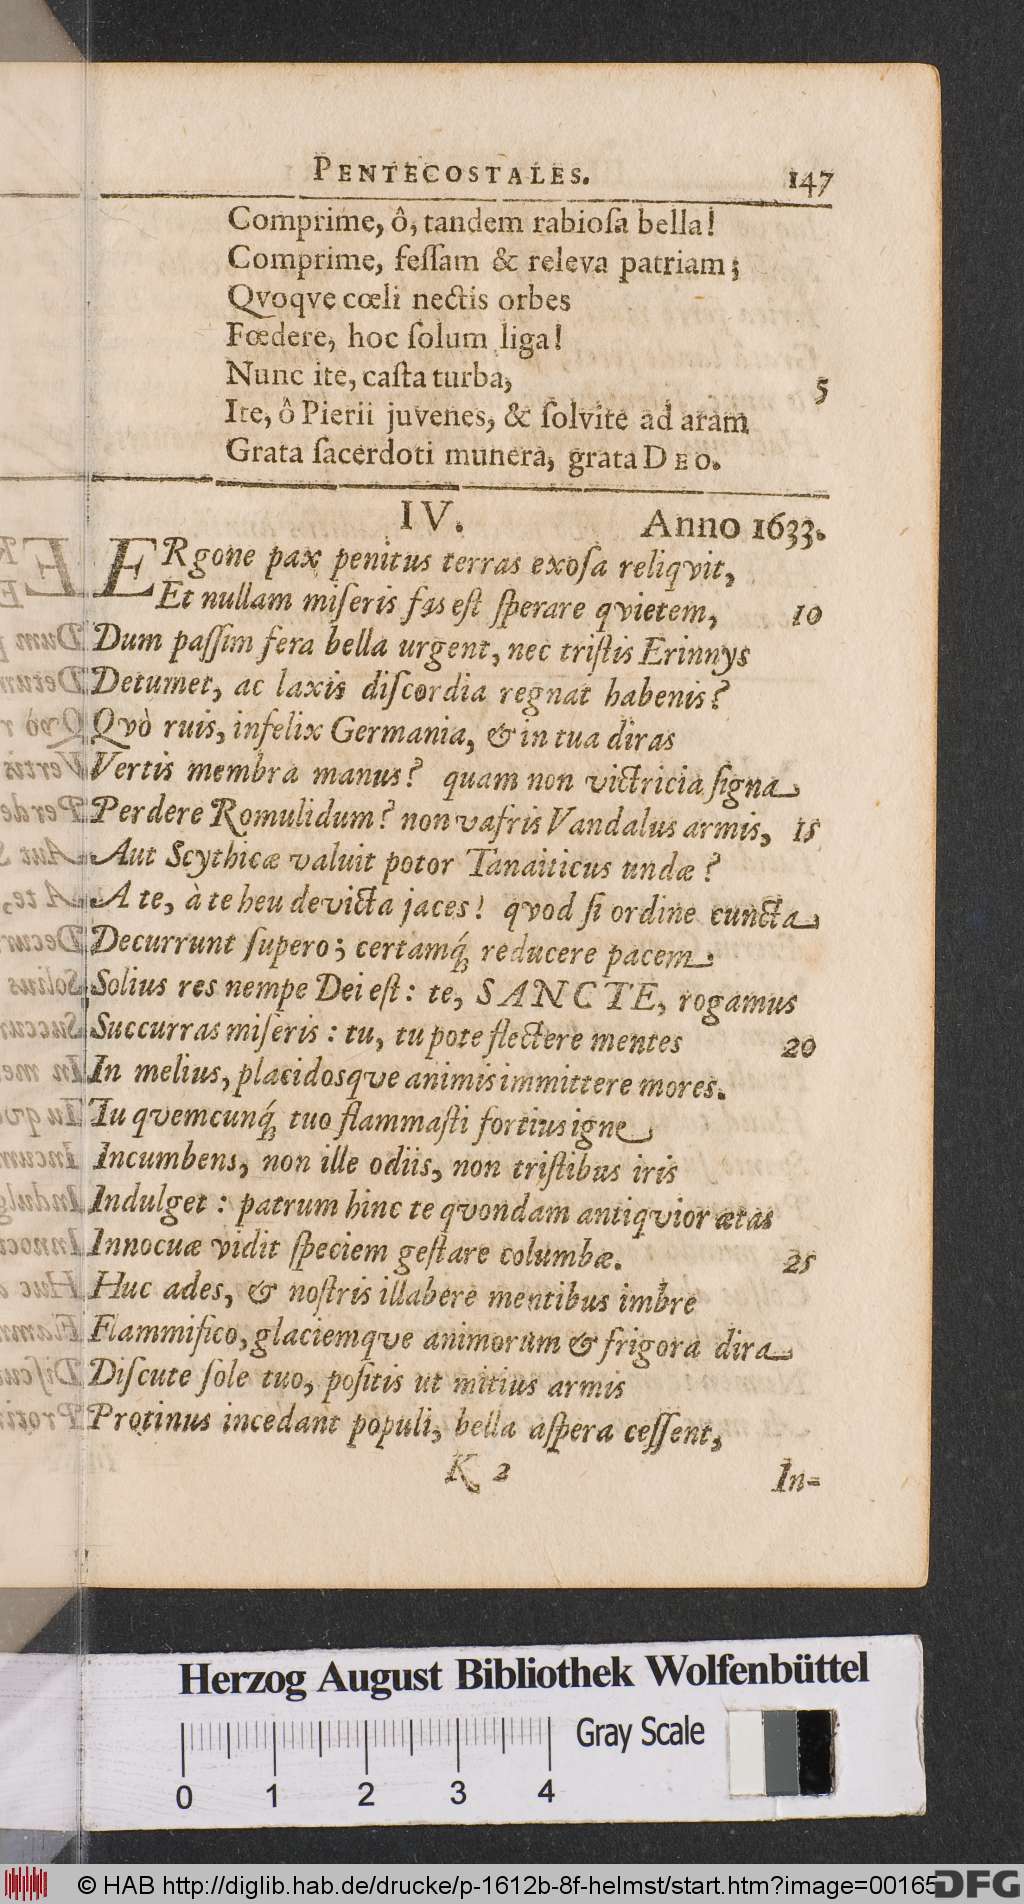 PENTECOSTALES. 147
Comprime, ô, tandem rabioſa bella!
Comprime, feſſam & releva patriam;
Qvoqve cœli nectis orbes
Fœdere, hoc ſolum liga!
Nunc ite, caſta turba, 5
Ite, ô Pierii juvenes, & ſolvite ad aram
Grata ſacerdoti munera, grata DEO.
IV. Anno 1633.
ERgone pax penitus terras exoſa reliqvit,
Et nullam miſeris fas eſt ſperare qvietem, 10
Dum paſſim fera bella urgent, nec triſtis Erinnys
Detumet, ac laxis diſcordia regnat habenis?
Qvò ruis, infelix Germania, & in tua diras
Vertis membra manus? quam non victricia ſigna
Perdere Romulidum? non vafris Vandalus armis, 15
Aut Scythicæ valuit potor Tanaiticus undæ?
A te, à te heu devicta jaces! qvod ſi ordine cuncta
Decurrunt ſupero; certamq́; reducere pacem
Solius res nempe Dei eſt: te, SANCTE, rogamus
Succurras miſeris: tu, tu pote flectere mentes 20
In melius, placidosqve animis immittere mores.
Tu qvemcunq́; tuo flammaſti fortius igne
Incumbens, non ille odiis, non triſtibus iris
Indulget: patrum hinc te qvondam antiqvior ætas
Innocuæ vidit ſpeciem geſtare columbæ. 25
Huc ades, & noſtris illabere mentibus imbre
Flammifico, glaciemqve animorum & frigora dira
Diſcute ſole tuo, poſitis ut mitius armis
Protinus incedant populi, bella aſpera ceſſent,
K 2 In-
Herzog August Bibliothek Wolfenbüttel
Gray Scale
0 1 2 3 4
© HAB http://diglib.hab.de/drucke/p-1612b-8f-helmst/start.htm?image=00165
DFG